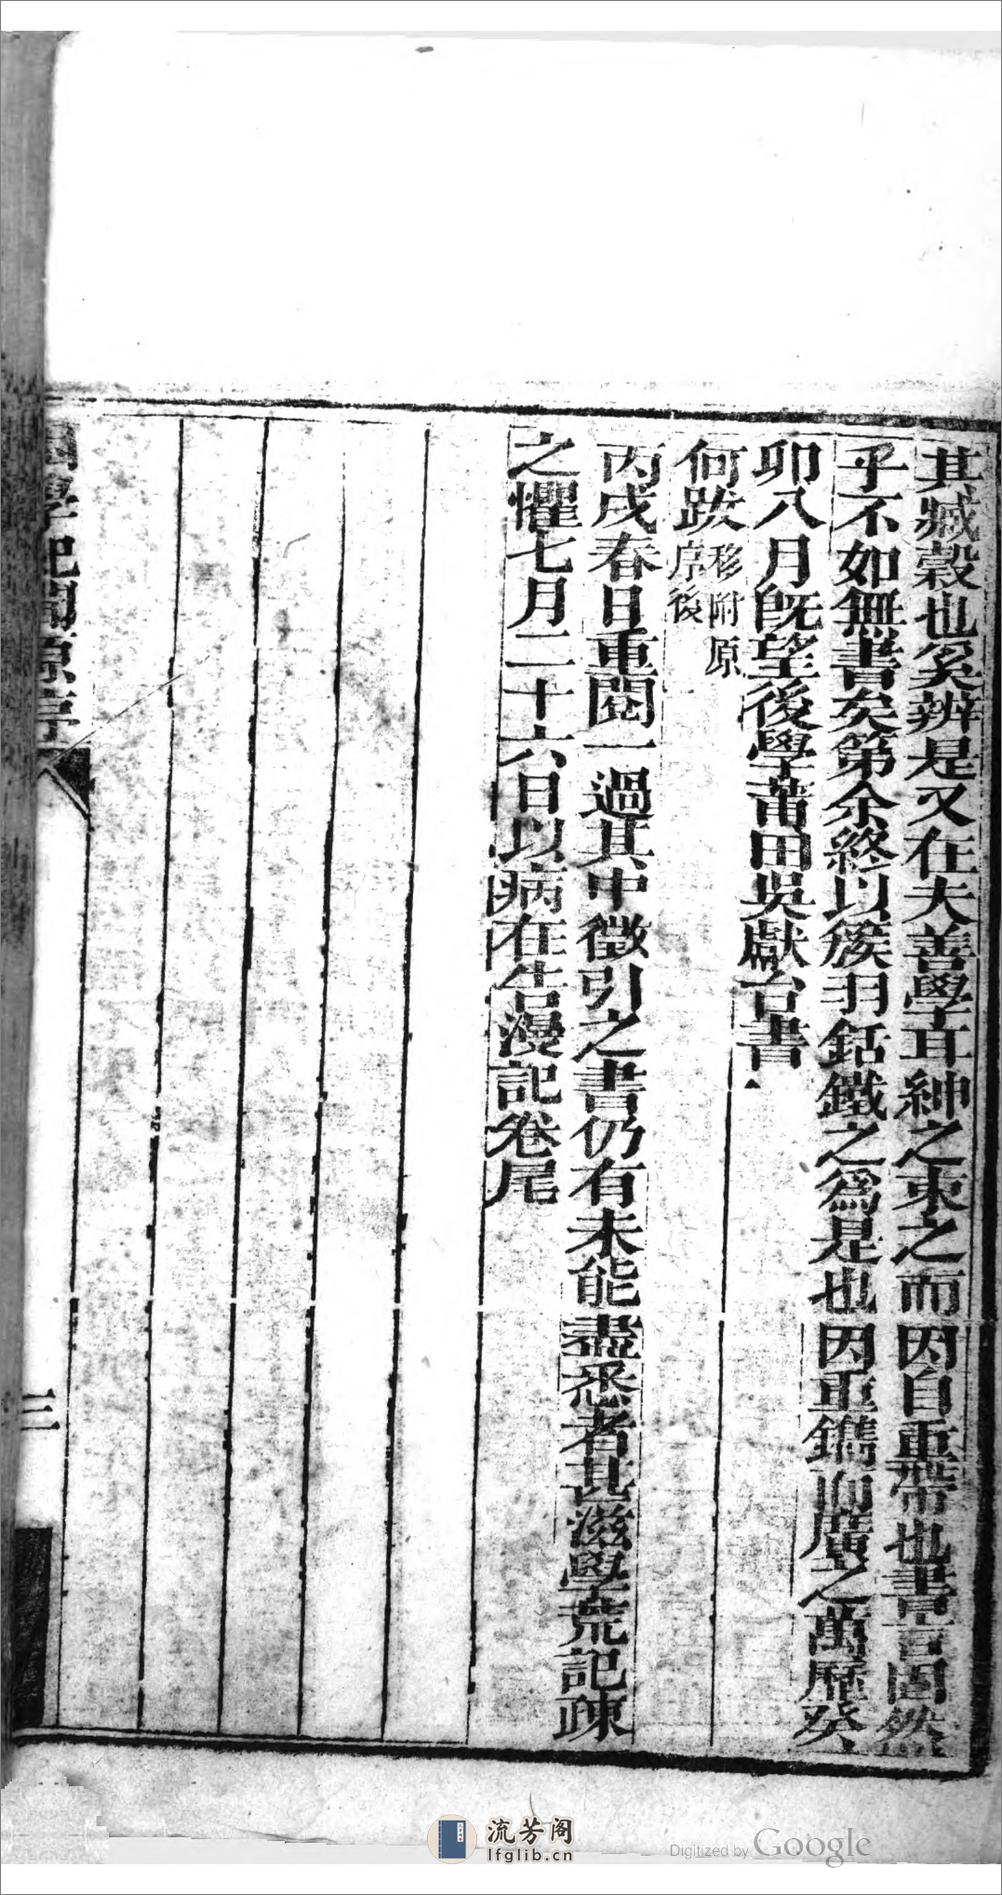 其臧穀也奚辨是又在夫善學耳紳之束之而因自重帶也書言固然
乎不如無書矣第余終以簇羽銛鐵之爲是也因重鐫而廣之萬歷癸
卯八月旣望後學莆田吳獻台書
何跋移附原序後
丙戌春日重閱一過其中徵引之書仍有未能盡悉者甚滋學荒記疎
之懼七月二十六日以病在告漫記卷尾
困學紀聞原序
三
流芳阁
lfglib.cn
Digitized by Google